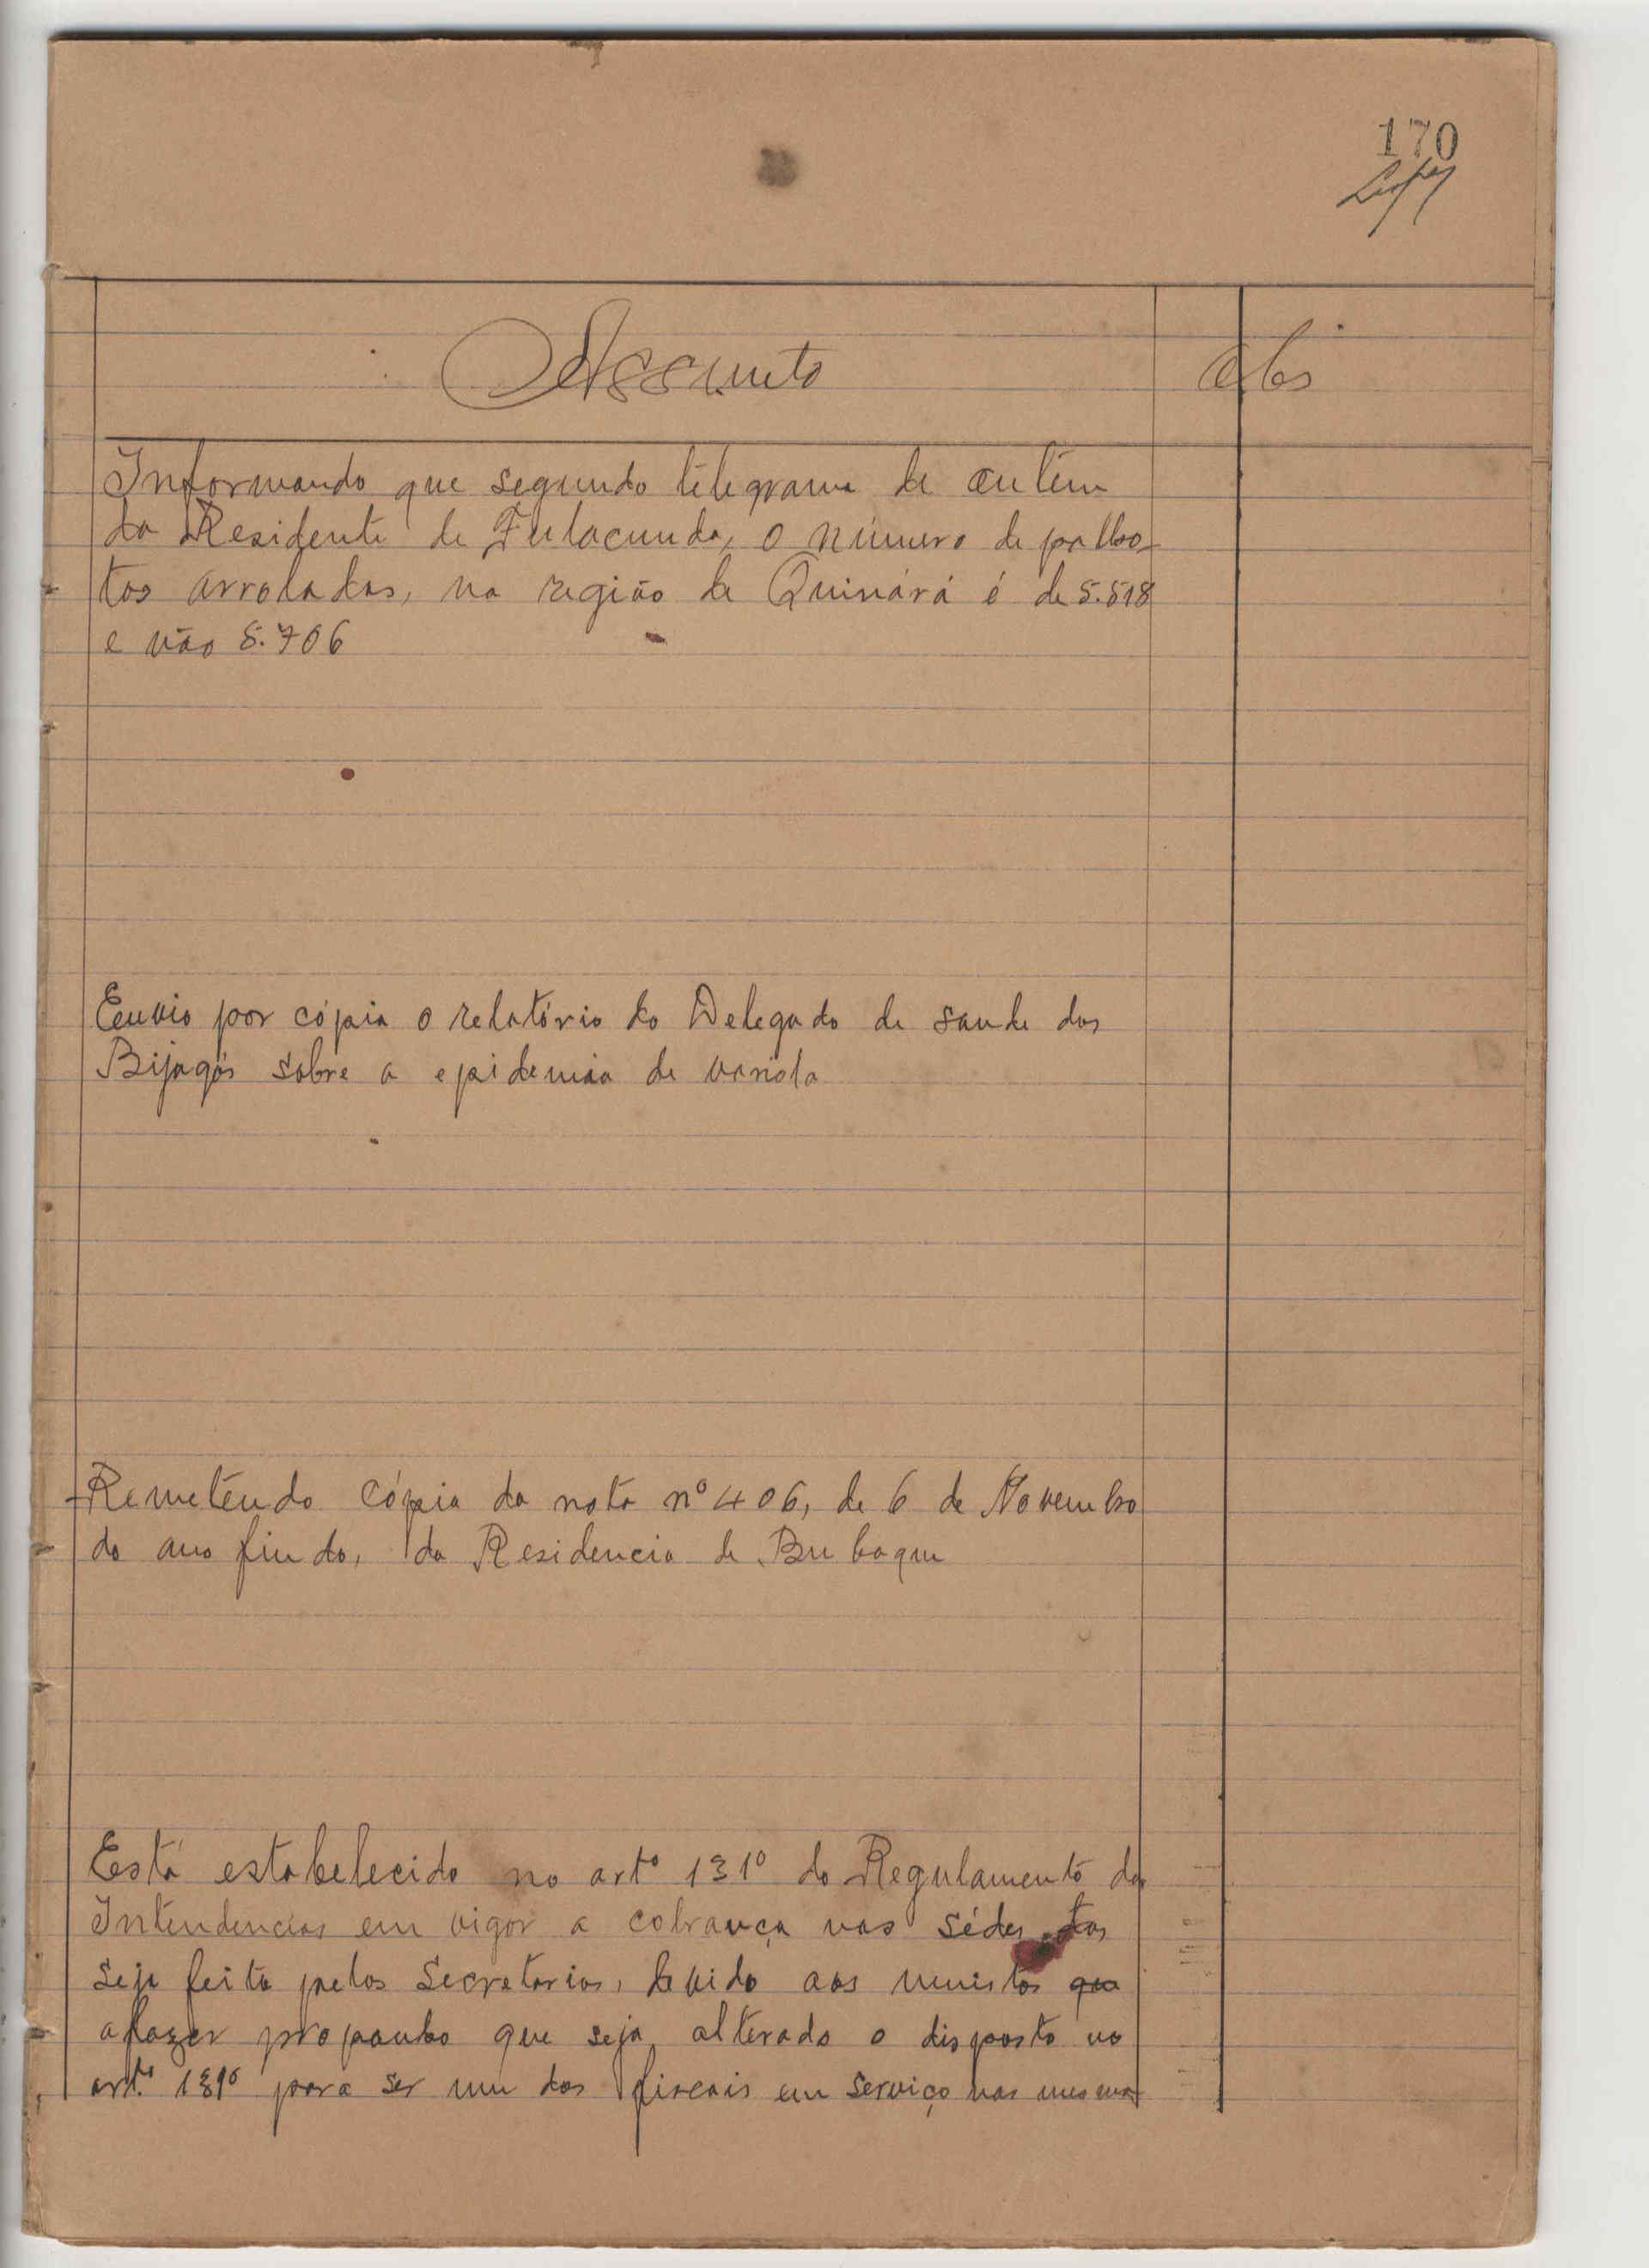 170
Lopes
Assunto
Obs
Informando que segundo telegrama de ontem
do Residente de Fulacunda, o número de palho-
tas arroladas, na região de Quinárá é de 5.518
e não 5.706
Envio por cópia o relatório do Delegado de saude dos
Bijagós sobre a epidemia de variola
Remetendo cópia da nota nº 406, de 6 de Novembro
do ano findo, da Residencia de Bubaque
Está estabelecido no artº 131º do Regulamento das
Intendencias em vigor a cobrança nas sédes das
seja feita pelos Secretarios, devido aos muitos
afazer proponho que seja alterado o disposto no
artº 131º para ser um dos fiscais em serviço nas mesmas